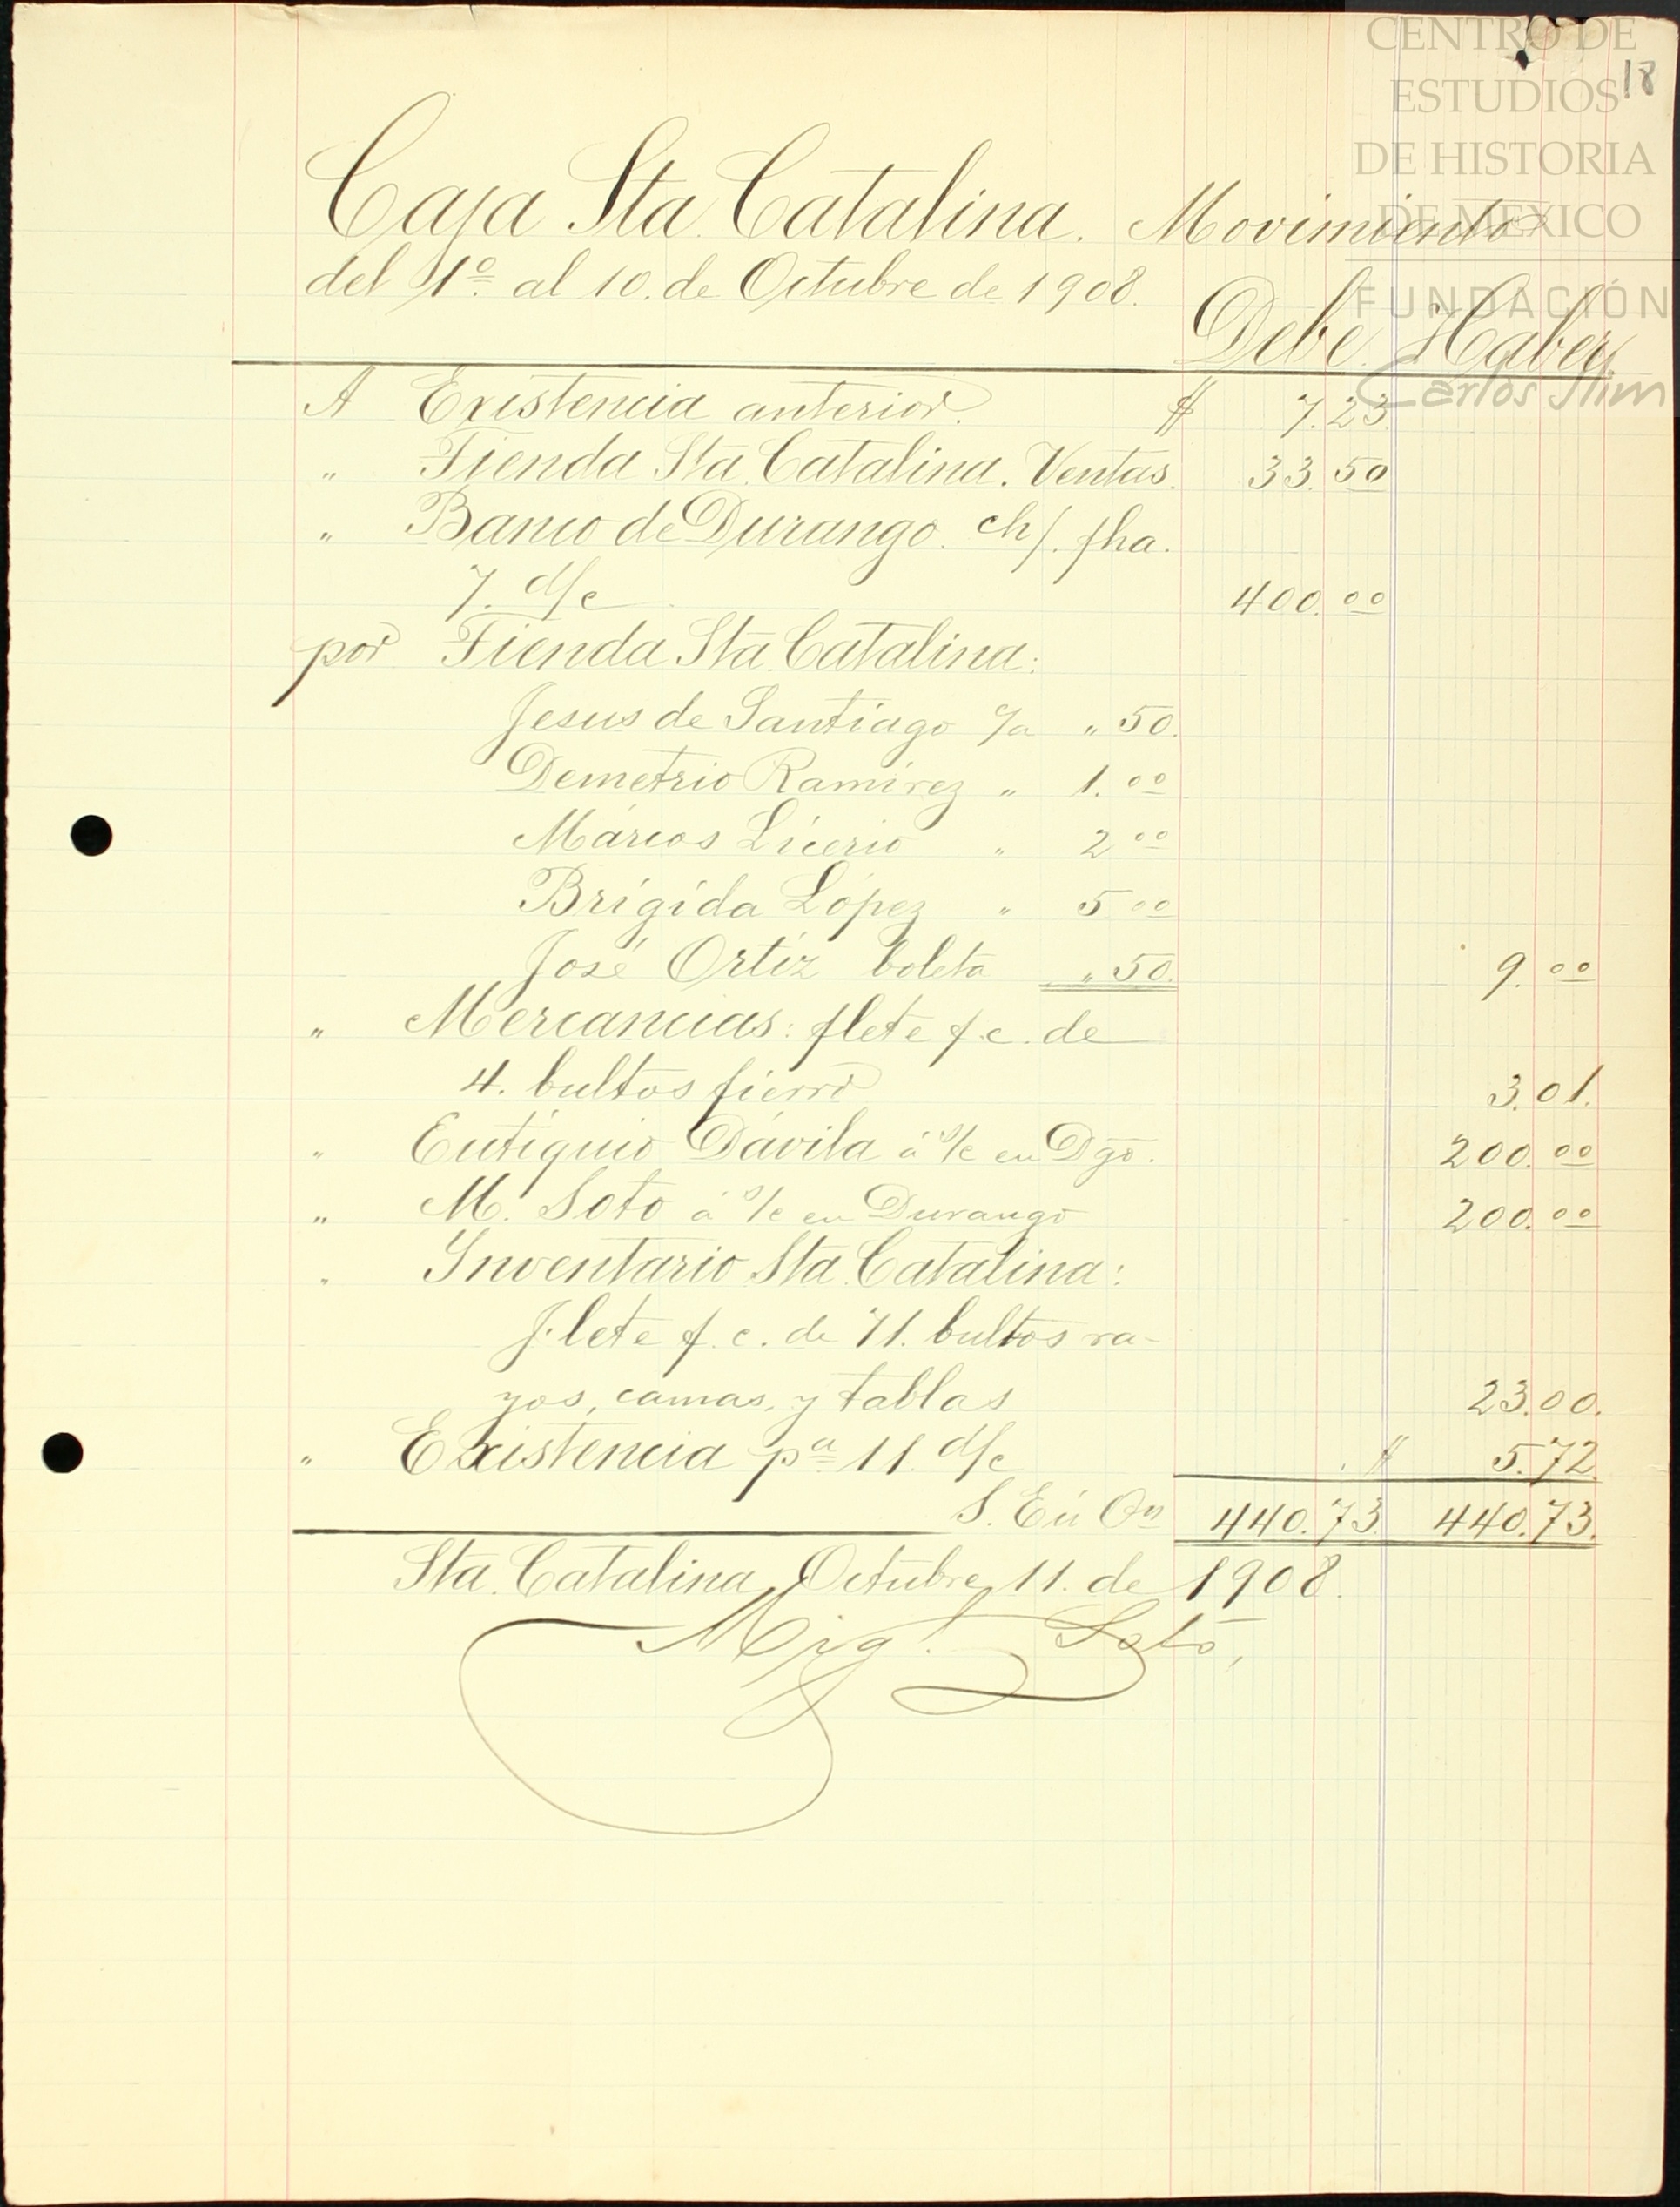 CENTRO DE
ESTUDIOS
18
DE HISTORIA
DE MEXICO
FUNDACIÓN
Carlos Slim
Caja Sta. Catalina. Movimiento
del 1º. al 10. de Octubre de 1908.
Debe. Haber.
A Existencia anterior. $ 7.23.
" Tienda Sta. Catalina. Ventas. 33.50
" Banco de Durango. ch/. fha.
7. d/c 400.00
por Tienda Sta. Catalina:
Jesus de Santiago c/a " 50.
Demetrio Ramirez " 1.00
Márcos Licerio " 2 00
Brígida López " 5 00
José Ortíz boleta " 50. 9.00
" Mercancias: flete f.c. de
4. bultos fierro 3.01.
" Eutiquio Dávila á s/c en Dgo. 200.00
" M. Soto á s/c en Durango 200.00
" Inventario Sta. Catalina:
Flete f.c. de 71. bultos ra-
yos, camas, y tablas 23.00.
" Existencia pa 11. d/c $ 5.72.
S. E ú On 440.73. 440.73.
Sta. Catalina, Octubre, 11. de 1908.
Migl. Soto,